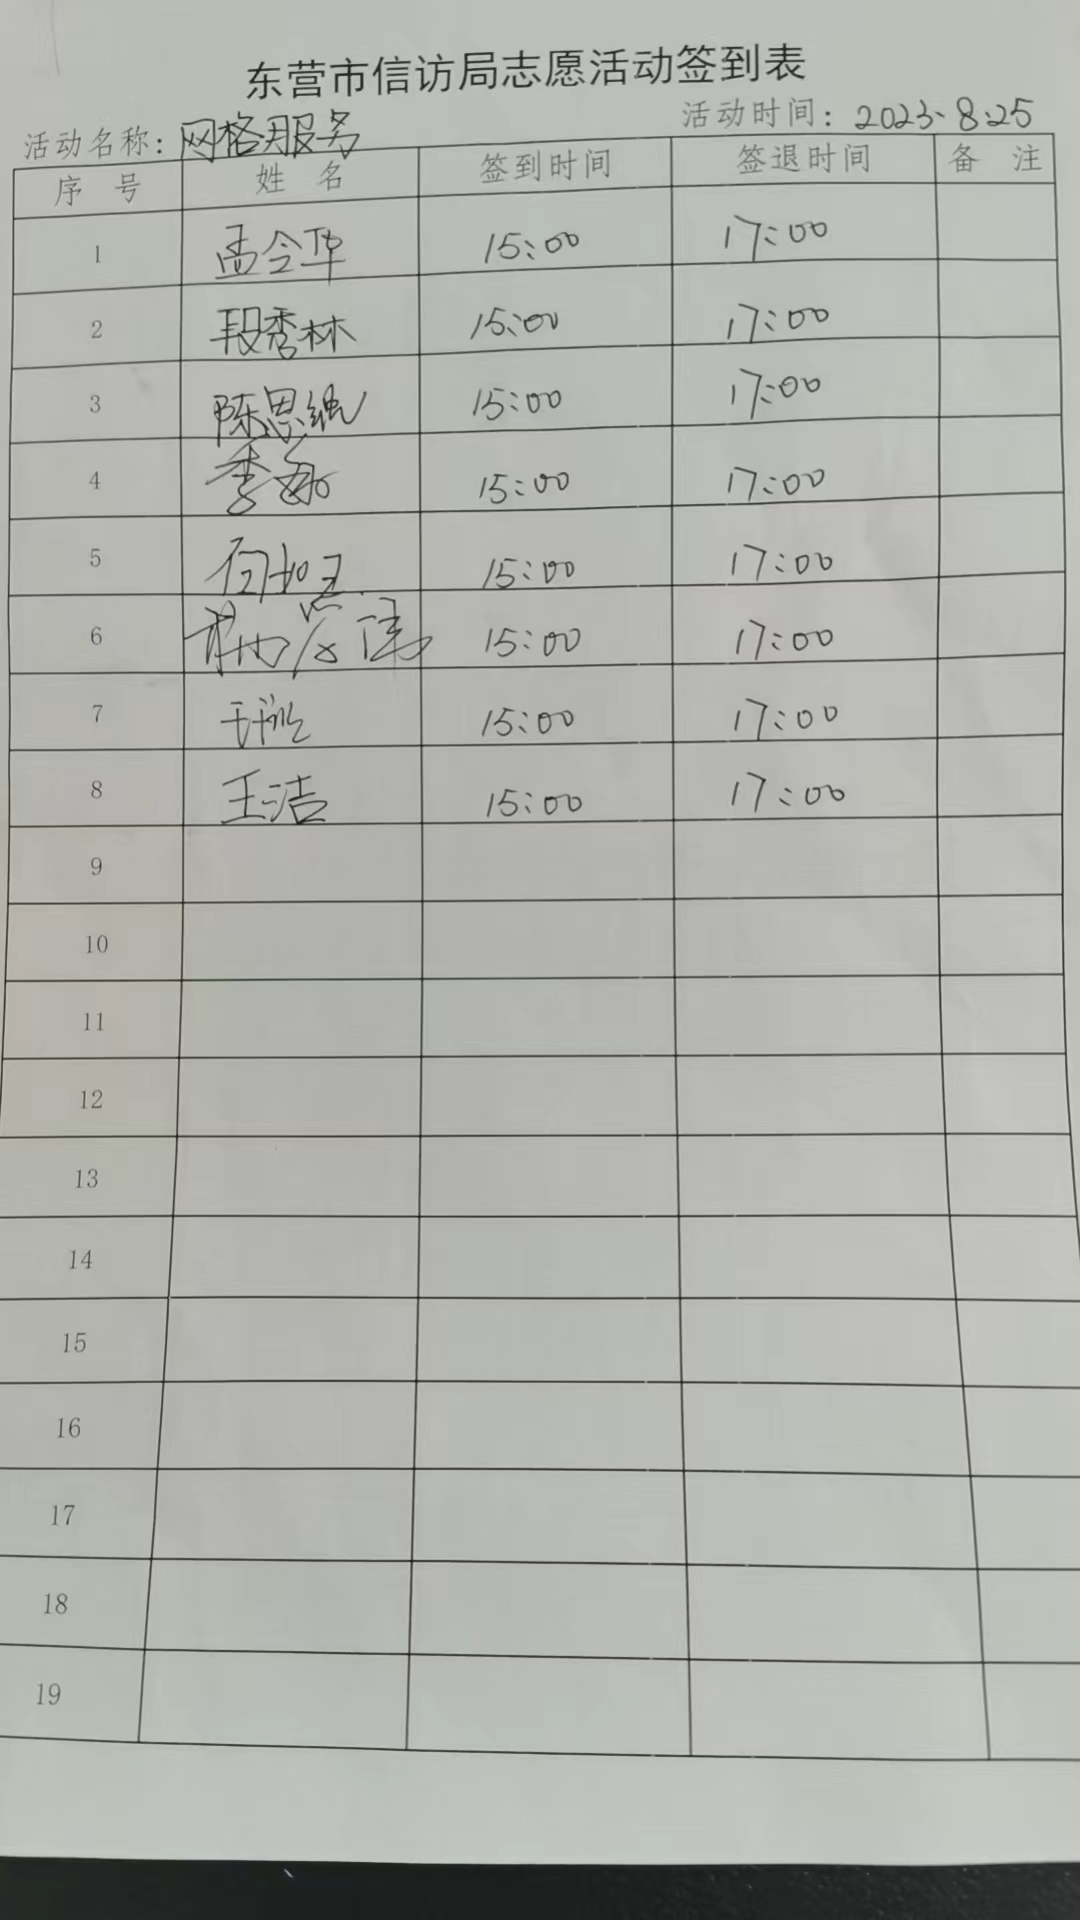 东营市信访局志愿活动签到表
活动名称：网格服务 活动时间：2023.8.25
序 号 姓 名 签到时间 签退时间 备 注
1 孟令华 15:00 17:00
2 段秀林 15:00 17:00
3 陈思 15:00 17:00
4 李 15:00 17:00
5 15:00 17:00
6 15:00 17:00
7 15:00 17:00
8 王洁 15:00 17:00
9
10
11
12
13
14
15
16
17
18
19